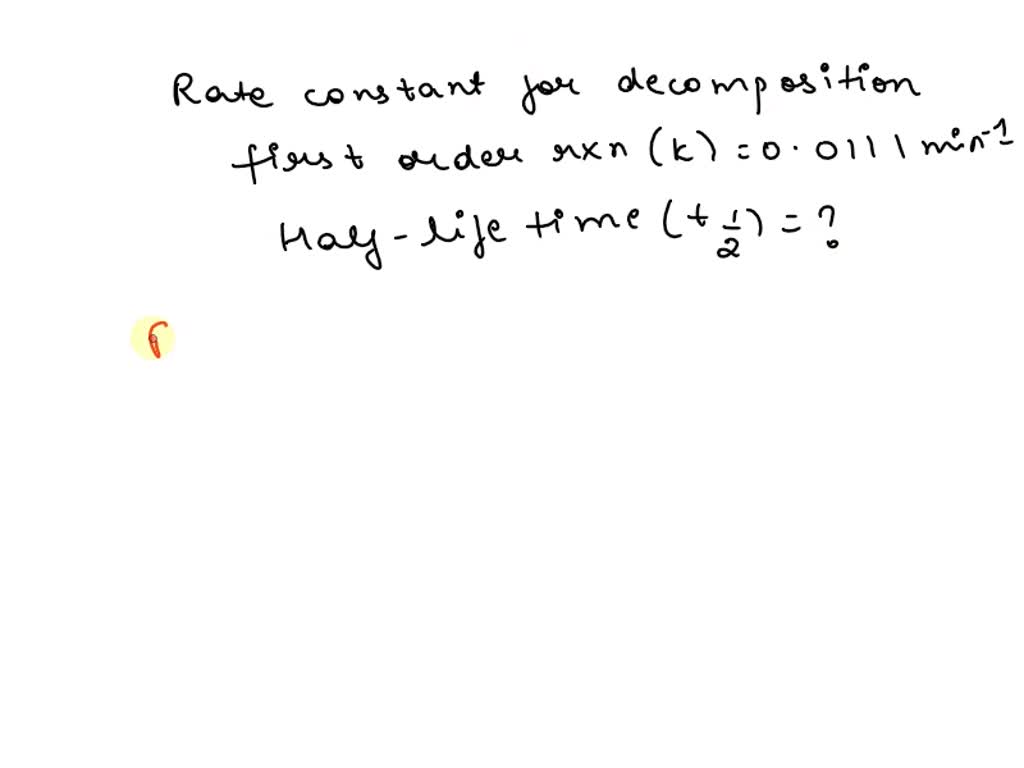 Rate constant for decomposition
first order rxn (k) = 0.0111 min⁻¹
Half-life time (t 1/2) = ?